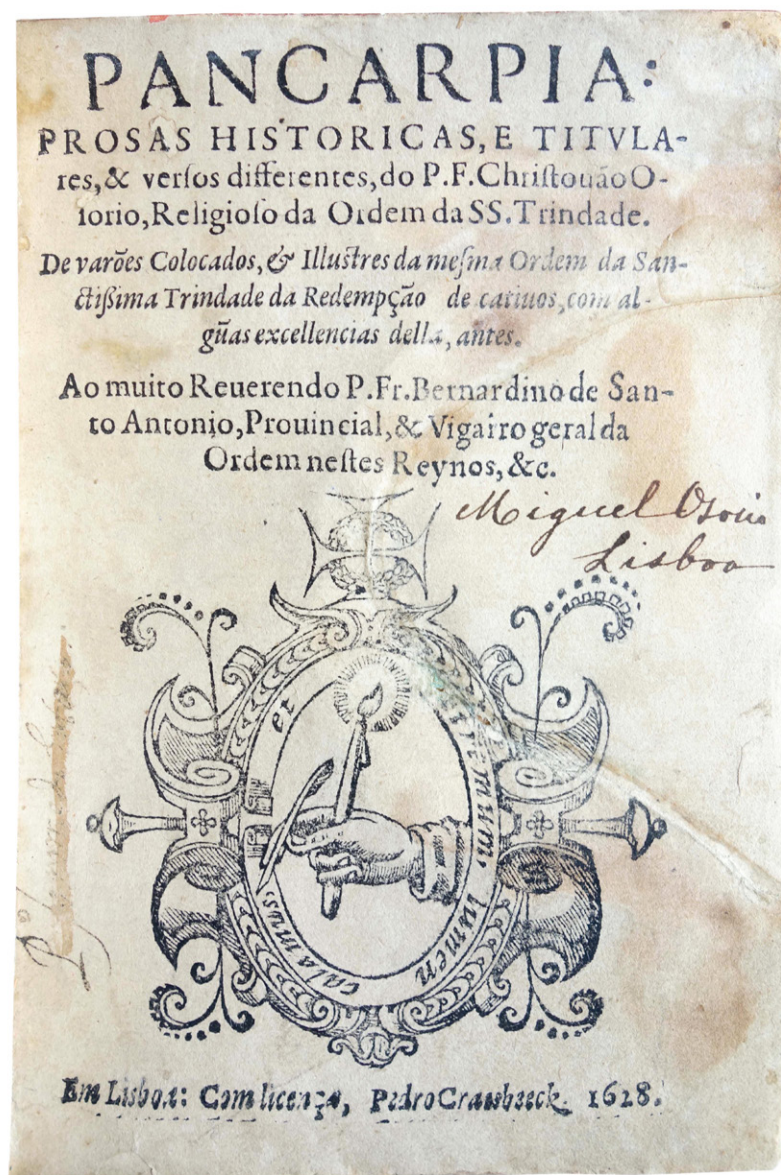 PANCARPIA:
PROSAS HISTORICAS, E TITVLA-
res, & verſos differentes, do P.F. Chriſtouão O-
ſorio, Religioſo da Ordem da SS. Trindade.
De varões Colocados, & Illuſtres da meſma Ordem da San-
ctiſsima Trindade da Redempção de catiuos, com al-
gũas excellencias della, antes.
Ao muito Reuerendo P. Fr. Bernardino de San-
to Antonio, Prouincial, & Vigairo geral da
Ordem neſtes Reynos, &c.
Miguel Osorio
Lisboa
et
calamus.
lumen
Em Lisboa: Com licença, Pedro Craesbeeck. 1628.